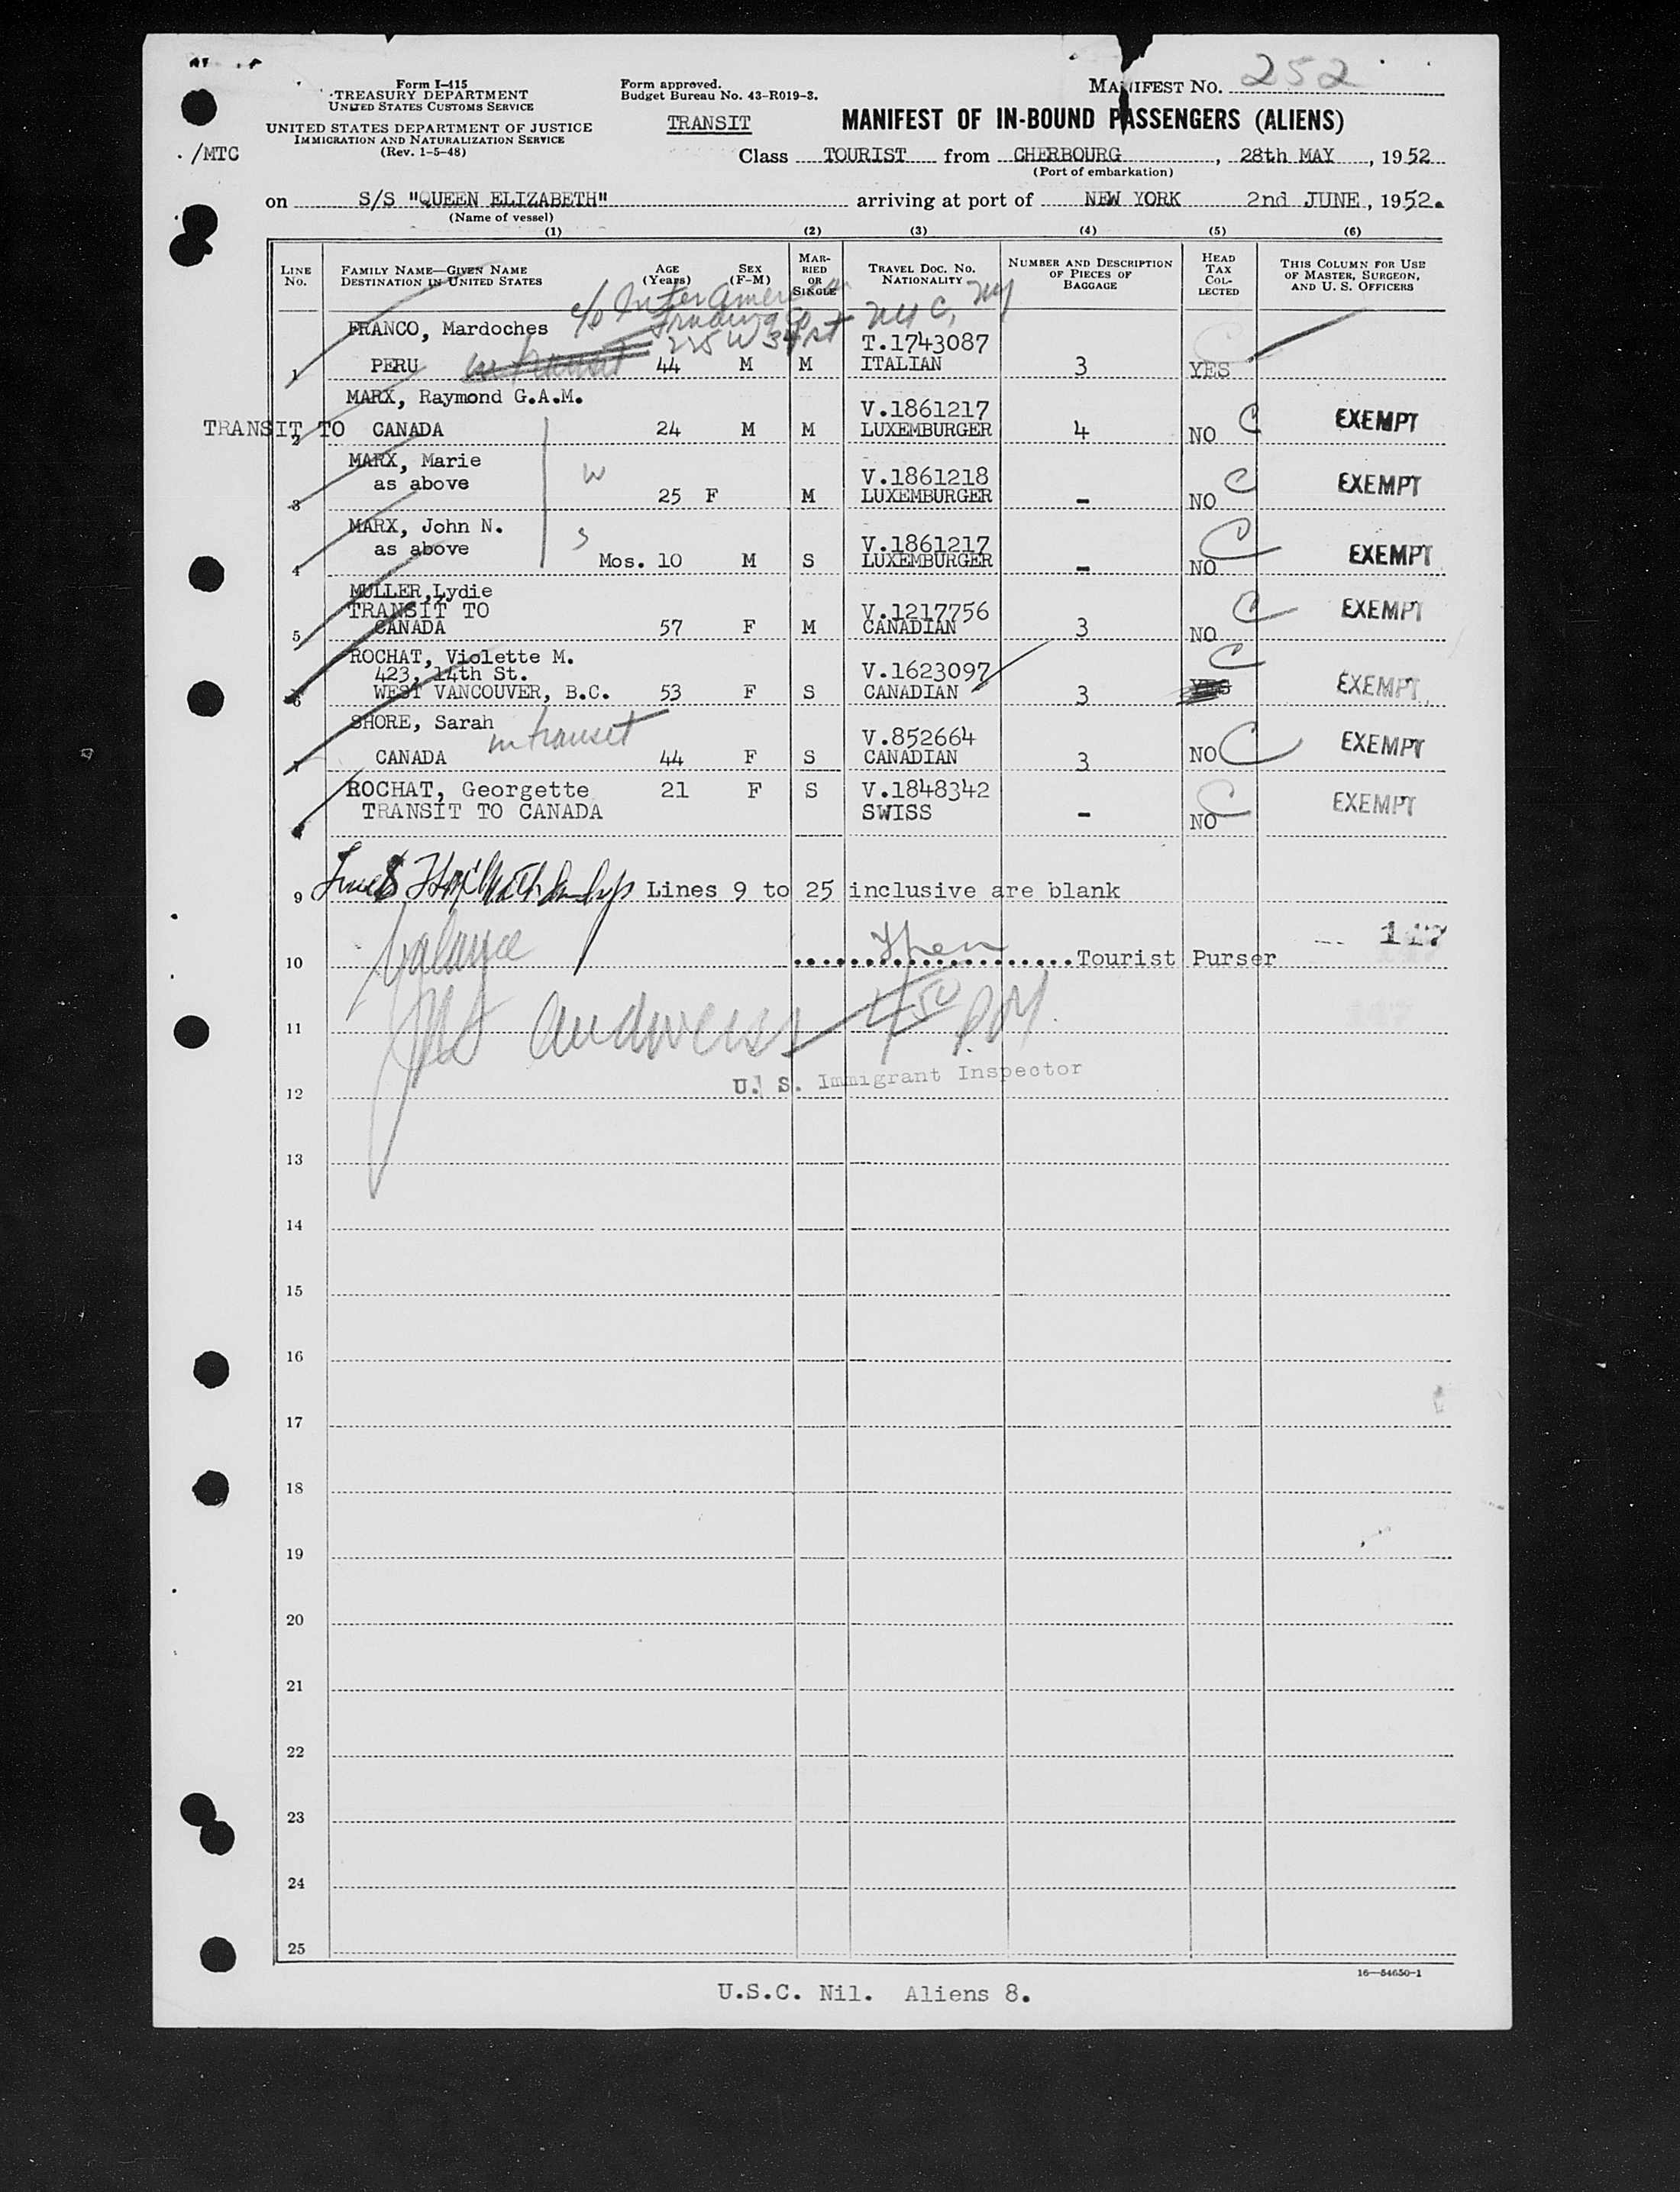 Form I-415
TREASURY DEPARTMENT
UNITED STATES CUSTOMS SERVICE
UNITED STATES DEPARTMENT OF JUSTICE
IMMIGRATION AND NATURALIZATION SERVICE
(Rev. 1-5-48)
/MTC
Form approved.
Budget Bureau No. 43-R019-3.
TRANSIT
MANIFEST NO. 252
MANIFEST OF IN-BOUND PASSENGERS (ALIENS)
Class TOURIST from CHERBOURG, 28th MAY, 1952
(Port of embarkation)
on S/S "QUEEN ELIZABETH" arriving at port of NEW YORK 2nd JUNE, 1952.
(Name of vessel)
(1) (2) (3) (4) (5) (6)
LINE NO. FAMILY NAME—GIVEN NAME DESTINATION IN UNITED STATES AGE (Years) SEX (F-M) MARRIED OR SINGLE TRAVEL DOC. NO. NATIONALITY NUMBER AND DESCRIPTION OF PIECES OF BAGGAGE HEAD TAX COLLECTED THIS COLUMN FOR USE OF MASTER, SURGEON, AND U. S. OFFICERS
c/o Inter American
Trading NYC, NY
225 W 34 St
FRANCO, Mardoches T.1743087
1 PERU in transit 44 M M ITALIAN 3 YES
MARX, Raymond G.A.M. V.1861217
TRANSIT TO 2 CANADA 24 M M LUXEMBURGER 4 NO C EXEMPT
MARX, Marie W V.1861218
3 as above 25 F M LUXEMBURGER - NO C EXEMPT
MARX, John N. S V.1861217
4 as above Mos. 10 M S LUXEMBURGER - NO C EXEMPT
MULLER,Lydie
TRANSIT TO V.1217756
5 CANADA 57 F M CANADIAN 3 NO C EXEMPT
ROCHAT, Violette M.
423, 14th St. V.1623097
6 WEST VANCOUVER, B.C. 53 F S CANADIAN 3 YES C EXEMPT
SHORE, Sarah in transit V.852664
7 CANADA 44 F S CANADIAN 3 NO C EXEMPT
ROCHAT, Georgette 21 F S V.1848342
TRANSIT TO CANADA SWISS - NO C EXEMPT
9 Lines 9 to 25 inclusive are blank
balance
10 Tourist Purser 147
11 Jas Andrews 450 PM
U. S. Immigrant Inspector
12
13
14
15
16
17
18
19
20
21
22
23
24
25
16—54650-1
U.S.C. Nil. Aliens 8.